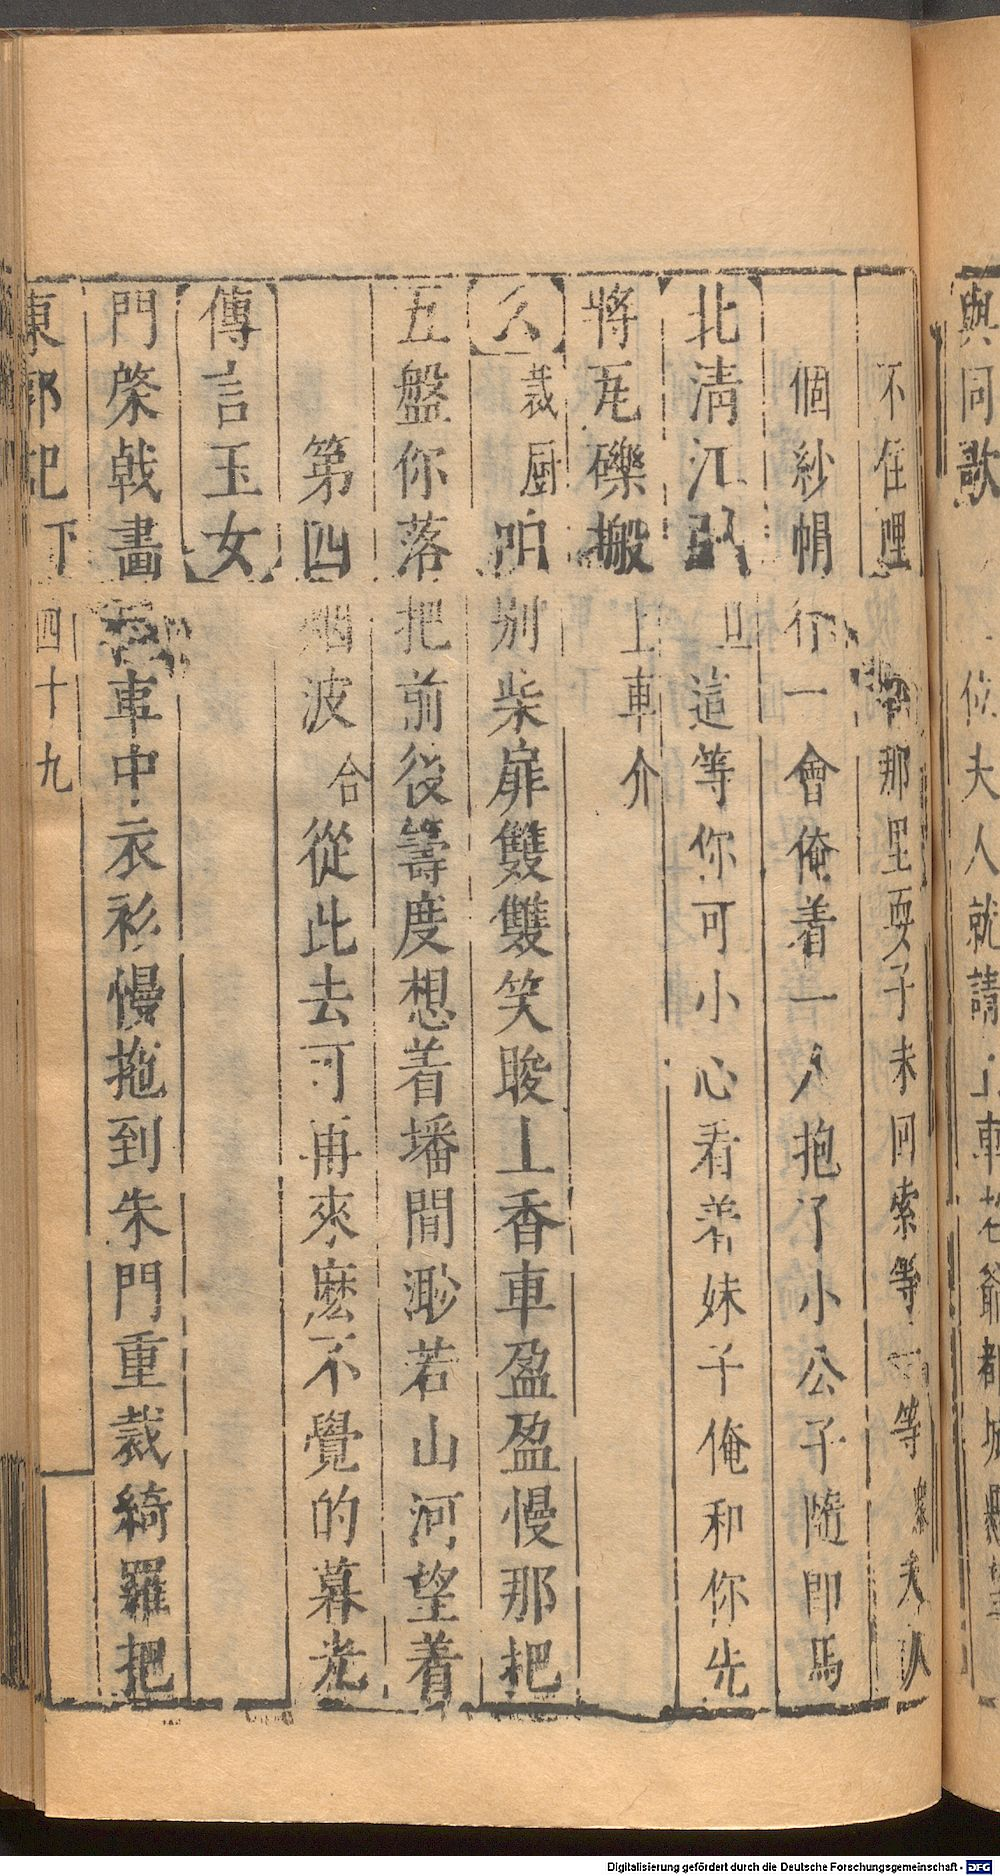 與同歌 位夫人就請上車老爺都城
不住哩 那里耍子未回索等一等衆夫人
個紗帽行一會俺着一人抱了小公子隨即馬
將瓦礫搬上車介
北清江引旦這等你可小心看着妹子俺和你先
么裁厨咱別柴扉雙雙笑晙上香車盈盈慢那把
五盤你落把前後籌度想着墦間渺若山河望着
第四烟波合從此去可再來麽不覺的暮光
傳言玉女
門棨戟畵 車中衣衫慢拖到朱門重裁綺羅把
東郭記 下 四十九
Digitalisierung gefördert durch die Deutsche Forschungsgemeinschaft - DFG